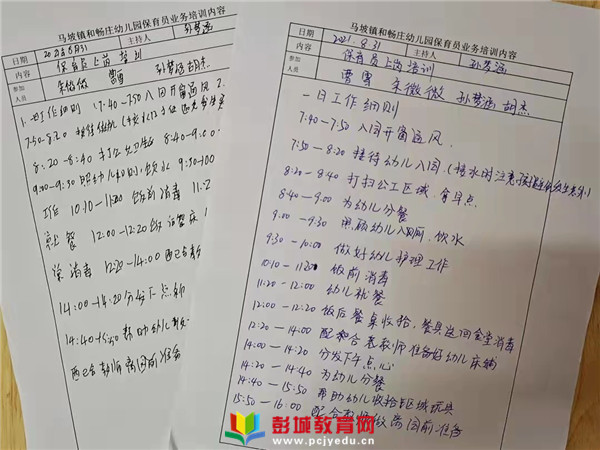 马坡镇和畅庄幼儿园保育员业务培训内容
日期 2021.8.31 主持人 孙梦涵
内容 保育员上岗培训
参加人员 朱微微 曹雪 孙梦涵 胡杰
1.一日工作细则 7:40-7:50 入园开窗通风 2.
7:50-8:20
8:20-8:40 打扫 卫生 8:40-9:00
9:00-9:30 照顾幼儿 饮水 9:30-10:00
工作 10:10-11:20 饭前消毒 11:2
就餐 12:00-12:20 饭后餐
消毒 12:20-14:00 配合
14:00-14:20 分发下午点心
14:40-15:50 帮助幼儿
配合教师 离园前准备
马坡镇和畅庄幼儿园保育员业务培训内容
日期 2021.8.31 主持人 孙梦涵
内容 保育员上岗培训
参加人员 曹雪 朱微微 孙梦涵 胡杰
一日工作细则
7:40-7:50 入园开窗通风.
7:50-8:20 接待幼儿入园.(接水时注意
8:20-8:40 打扫公工区域.拿早点.
8:40-9:00 为幼儿分餐
9:00-9:30 照顾幼儿入厕前.饮水
9:30-10:00 做好幼儿护理工作
10:10-11:20 饭前消毒
11:20-12:00 幼儿就餐
12:00-12:20 饭后餐桌收拾,餐具送回食堂消毒
12:20-14:00 配和合老教师准备好幼儿床铺
14:00-14:20 分发下午点心
14:20-14:40 为幼儿分餐
14:40-15:50 帮助幼儿收拾区域玩具
15:50-16:00 配合教师做离园前准备
彭城教育网
www.pcjyedu.cn